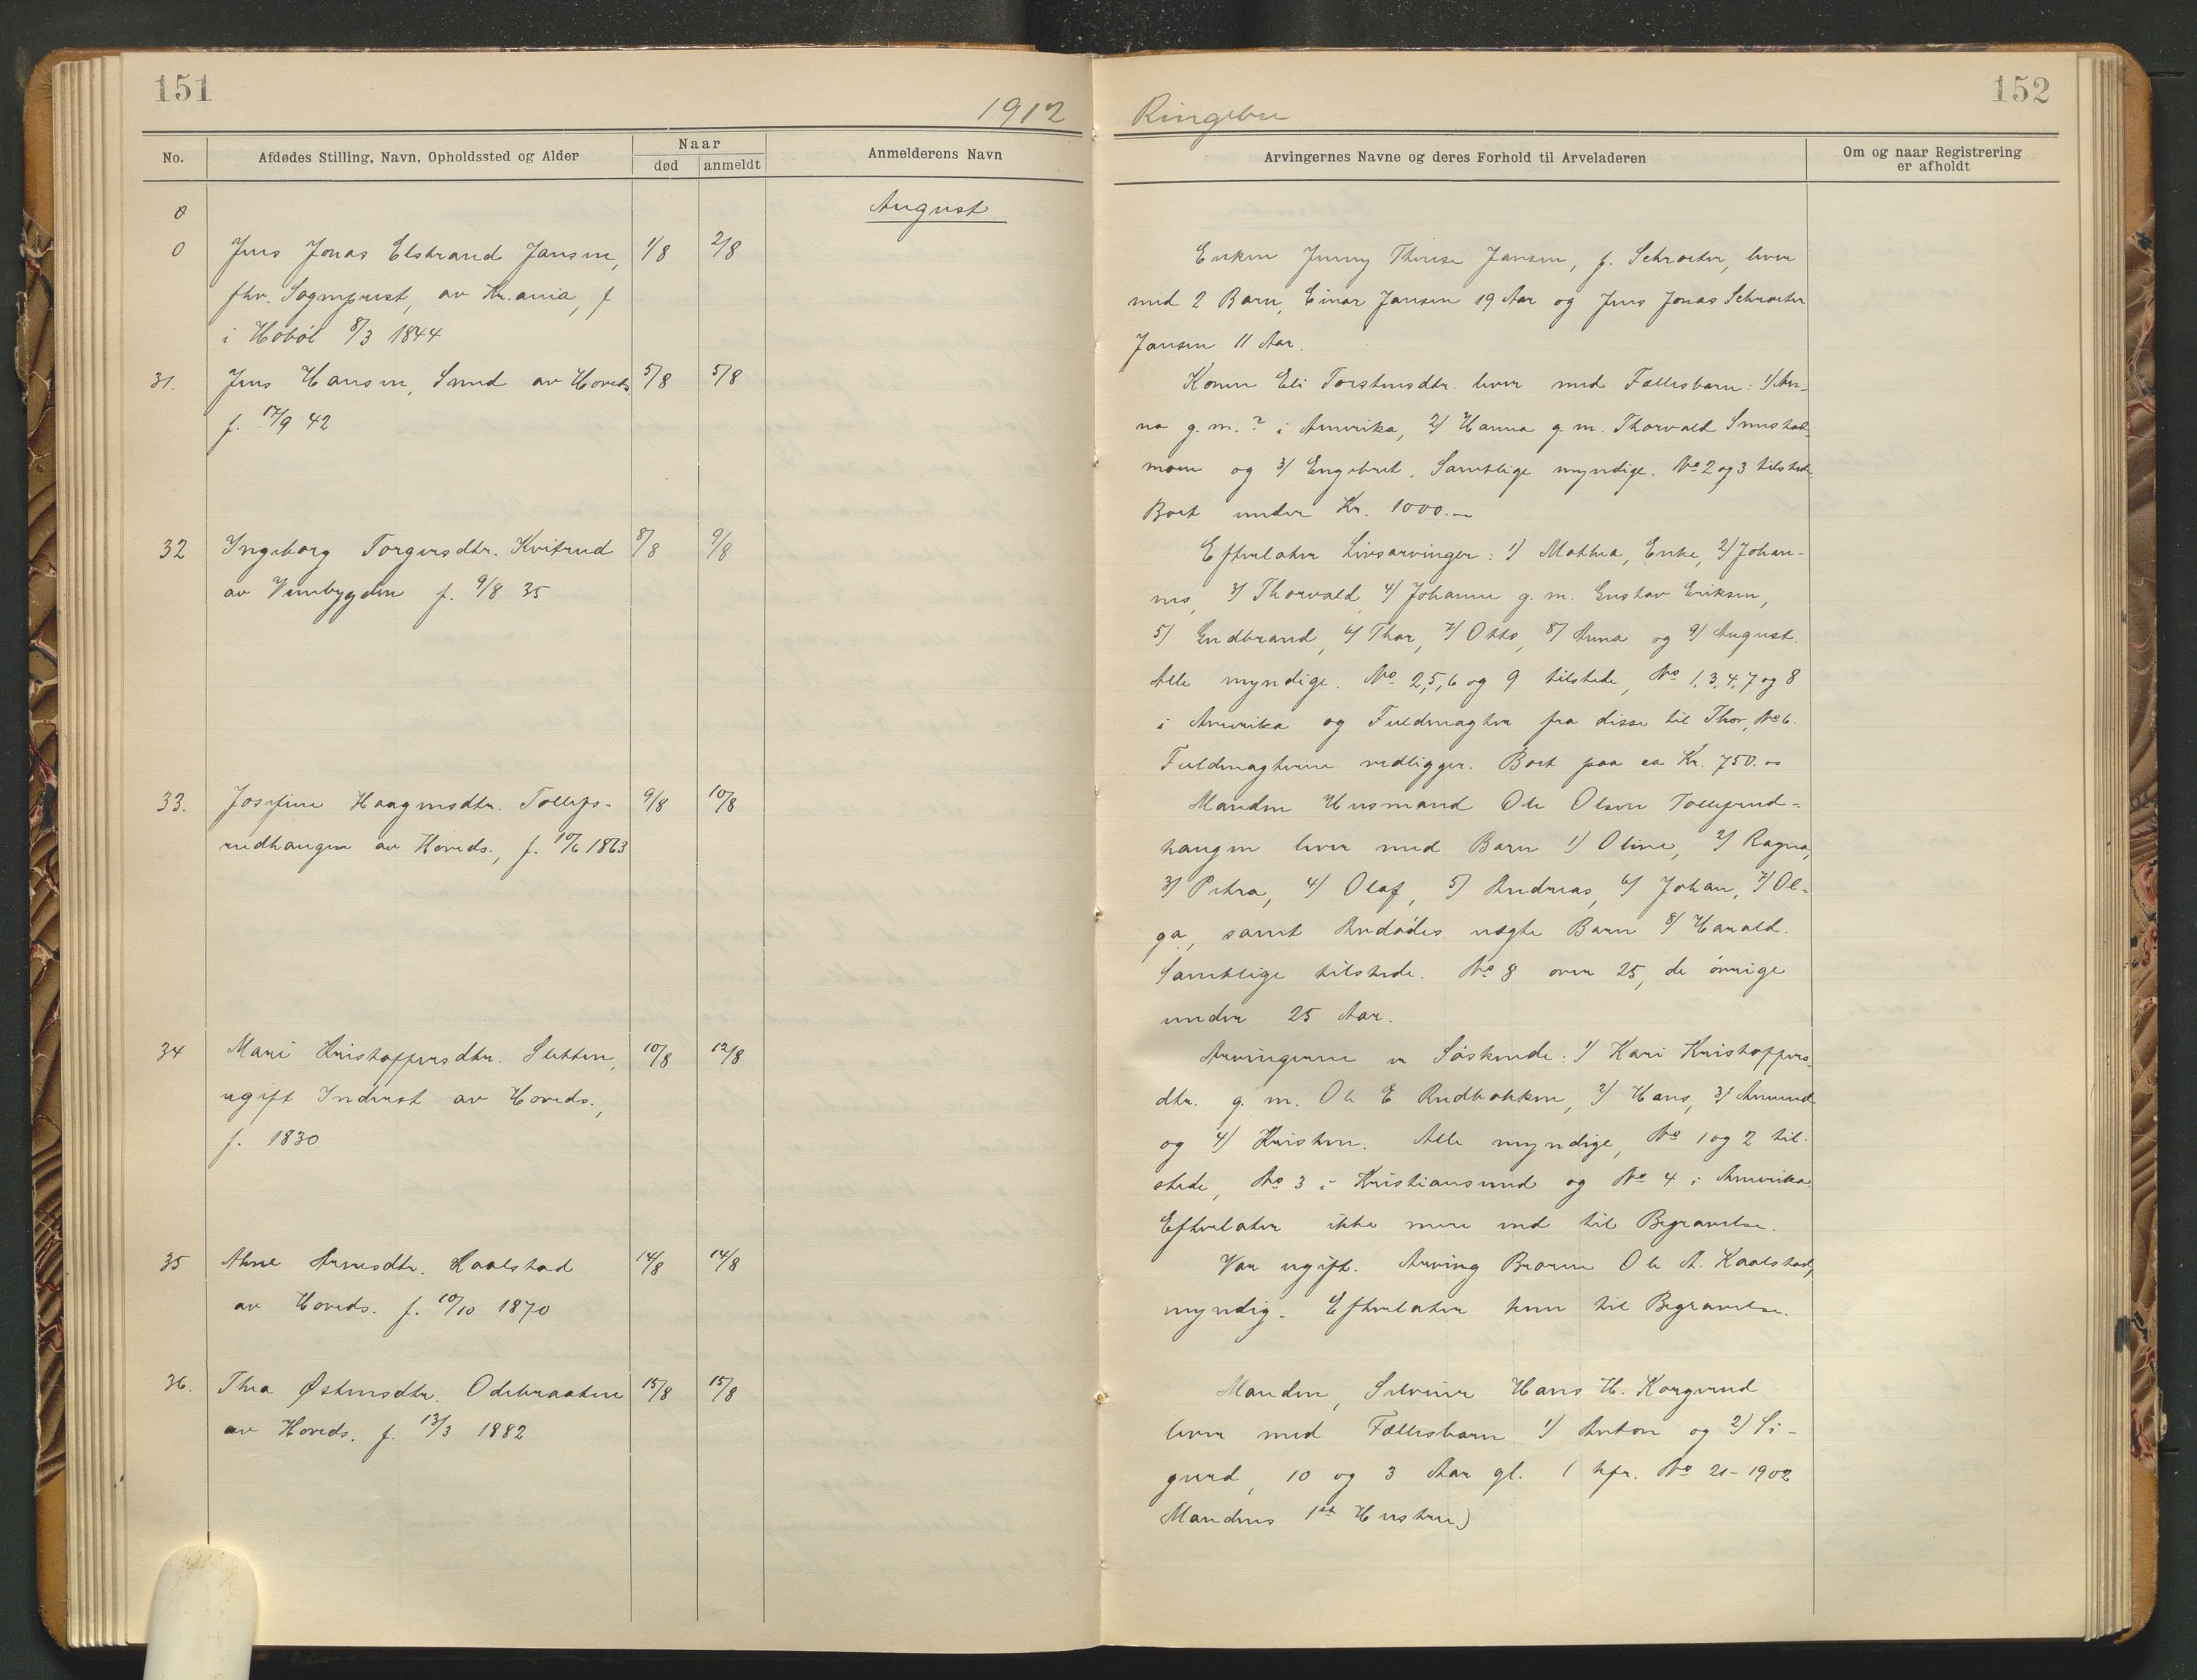 151
1912
No.
Afdødes Stilling, Navn, Opholdssted og Alder
Naar
død
anmeldt
Anmelderens Navn
0
August
0 Jens Jonas Elstrand Jansen, 1/8 2/8
fhv. Sogneprest, av Kr.ania, f
i Hobøl 8/3 1844
31. Jens Hansen, Smed av Hoveds. 5/8 5/8
f. 17/9 42
32 Ingeborg Torgersdtr. Kvitrud 8/8 9/8
av Venebygden f. 9/8 35
33. Josefine Haagensdtr. Tollefs- 9/8 10/8
rudhaugen av Hoveds., f. 10/6 1863
34 Mari Kristoffersdtr. Sletten, 10/8 12/8
ugift Inderst av Hoveds.,
f. 1830
35 Anne Arnesdtr. Kaalstad 14/8 14/8
av Hoveds. f. 10/10 1870
36. Thea Østensdtr. Odebraaten 15/8 15/8
av Hoveds. f. 13/3 1882
152
Ringebu
Arvingernes Navne og deres Forhold til Arveladeren
Om og naar Registrering
er afholdt
Enken Jenny Therese Jansen, f. Schroeter, lever
med 2 Barn, Einar Jansen 19 Aar og Jens Jonas Schroeter
Jansen 11 Aar.
Konen Eli Torstensdtr. lever med Fællesbarn: 1) An-
na g.m. ? i Amerika, 2) Hanna g.m. Thorvald
moen og 3) Engebret. Samtlige myndige. No 2 og 3 tilstede.
Boet under Kr. 1000.-
Efterlater Livsarvinger: 1) Mathea, Enke, 2) Johan-
nes, 3) Thorvald 4) Johanne g.m. Gustav Eriksen,
5) Gudbrand, 6) Thor, 7) Otto, 8) Anna og 9) August.
Alle myndige. No 2, 5, 6 og 9 tilstede, No 1, 3, 4, 7 og 8
i Amerika og Fuldmagter fra disse til Thor, No 6.
Fuldmagterne vedligger. Boet paa ca Kr. 750.-
Manden Husmand Ole Olsen Tollefsrud-
haugen lever med Barn 1) Oline, 2) Ragna,
3) Petra, 4) Olaf, 5) Andreas, 6) Johan, 7) Ol-
ga, samt Avdødes uegte Barn 8) Harald.
Samtlige tilstede. No 8 over 25, de øvrige
under 25 Aar.
Arvingerne er Søskende: 1) Kari Kristoffers-
dtr. g.m. Ole E. Rudbakken, 2) Hans, 3) Amund
og 4) Kristen. Alle myndige, No 1 og 2 til-
stede, No 3 i Kristiansund og No 4 i Amerika.
Efterlater ikke mere end til Begravelse.
Var ugift. Arving Broren Ole A. Kaalstad,
myndig. Efterlater kun til Begravelse.
Manden, Selveier Hans H. Korgerud
lever med Fællesbarn 1) Anton og 2) Si-
gurd, 10 og 3 Aar gl. (kfr. No 21-1902
Mandens 1ste Hustru)